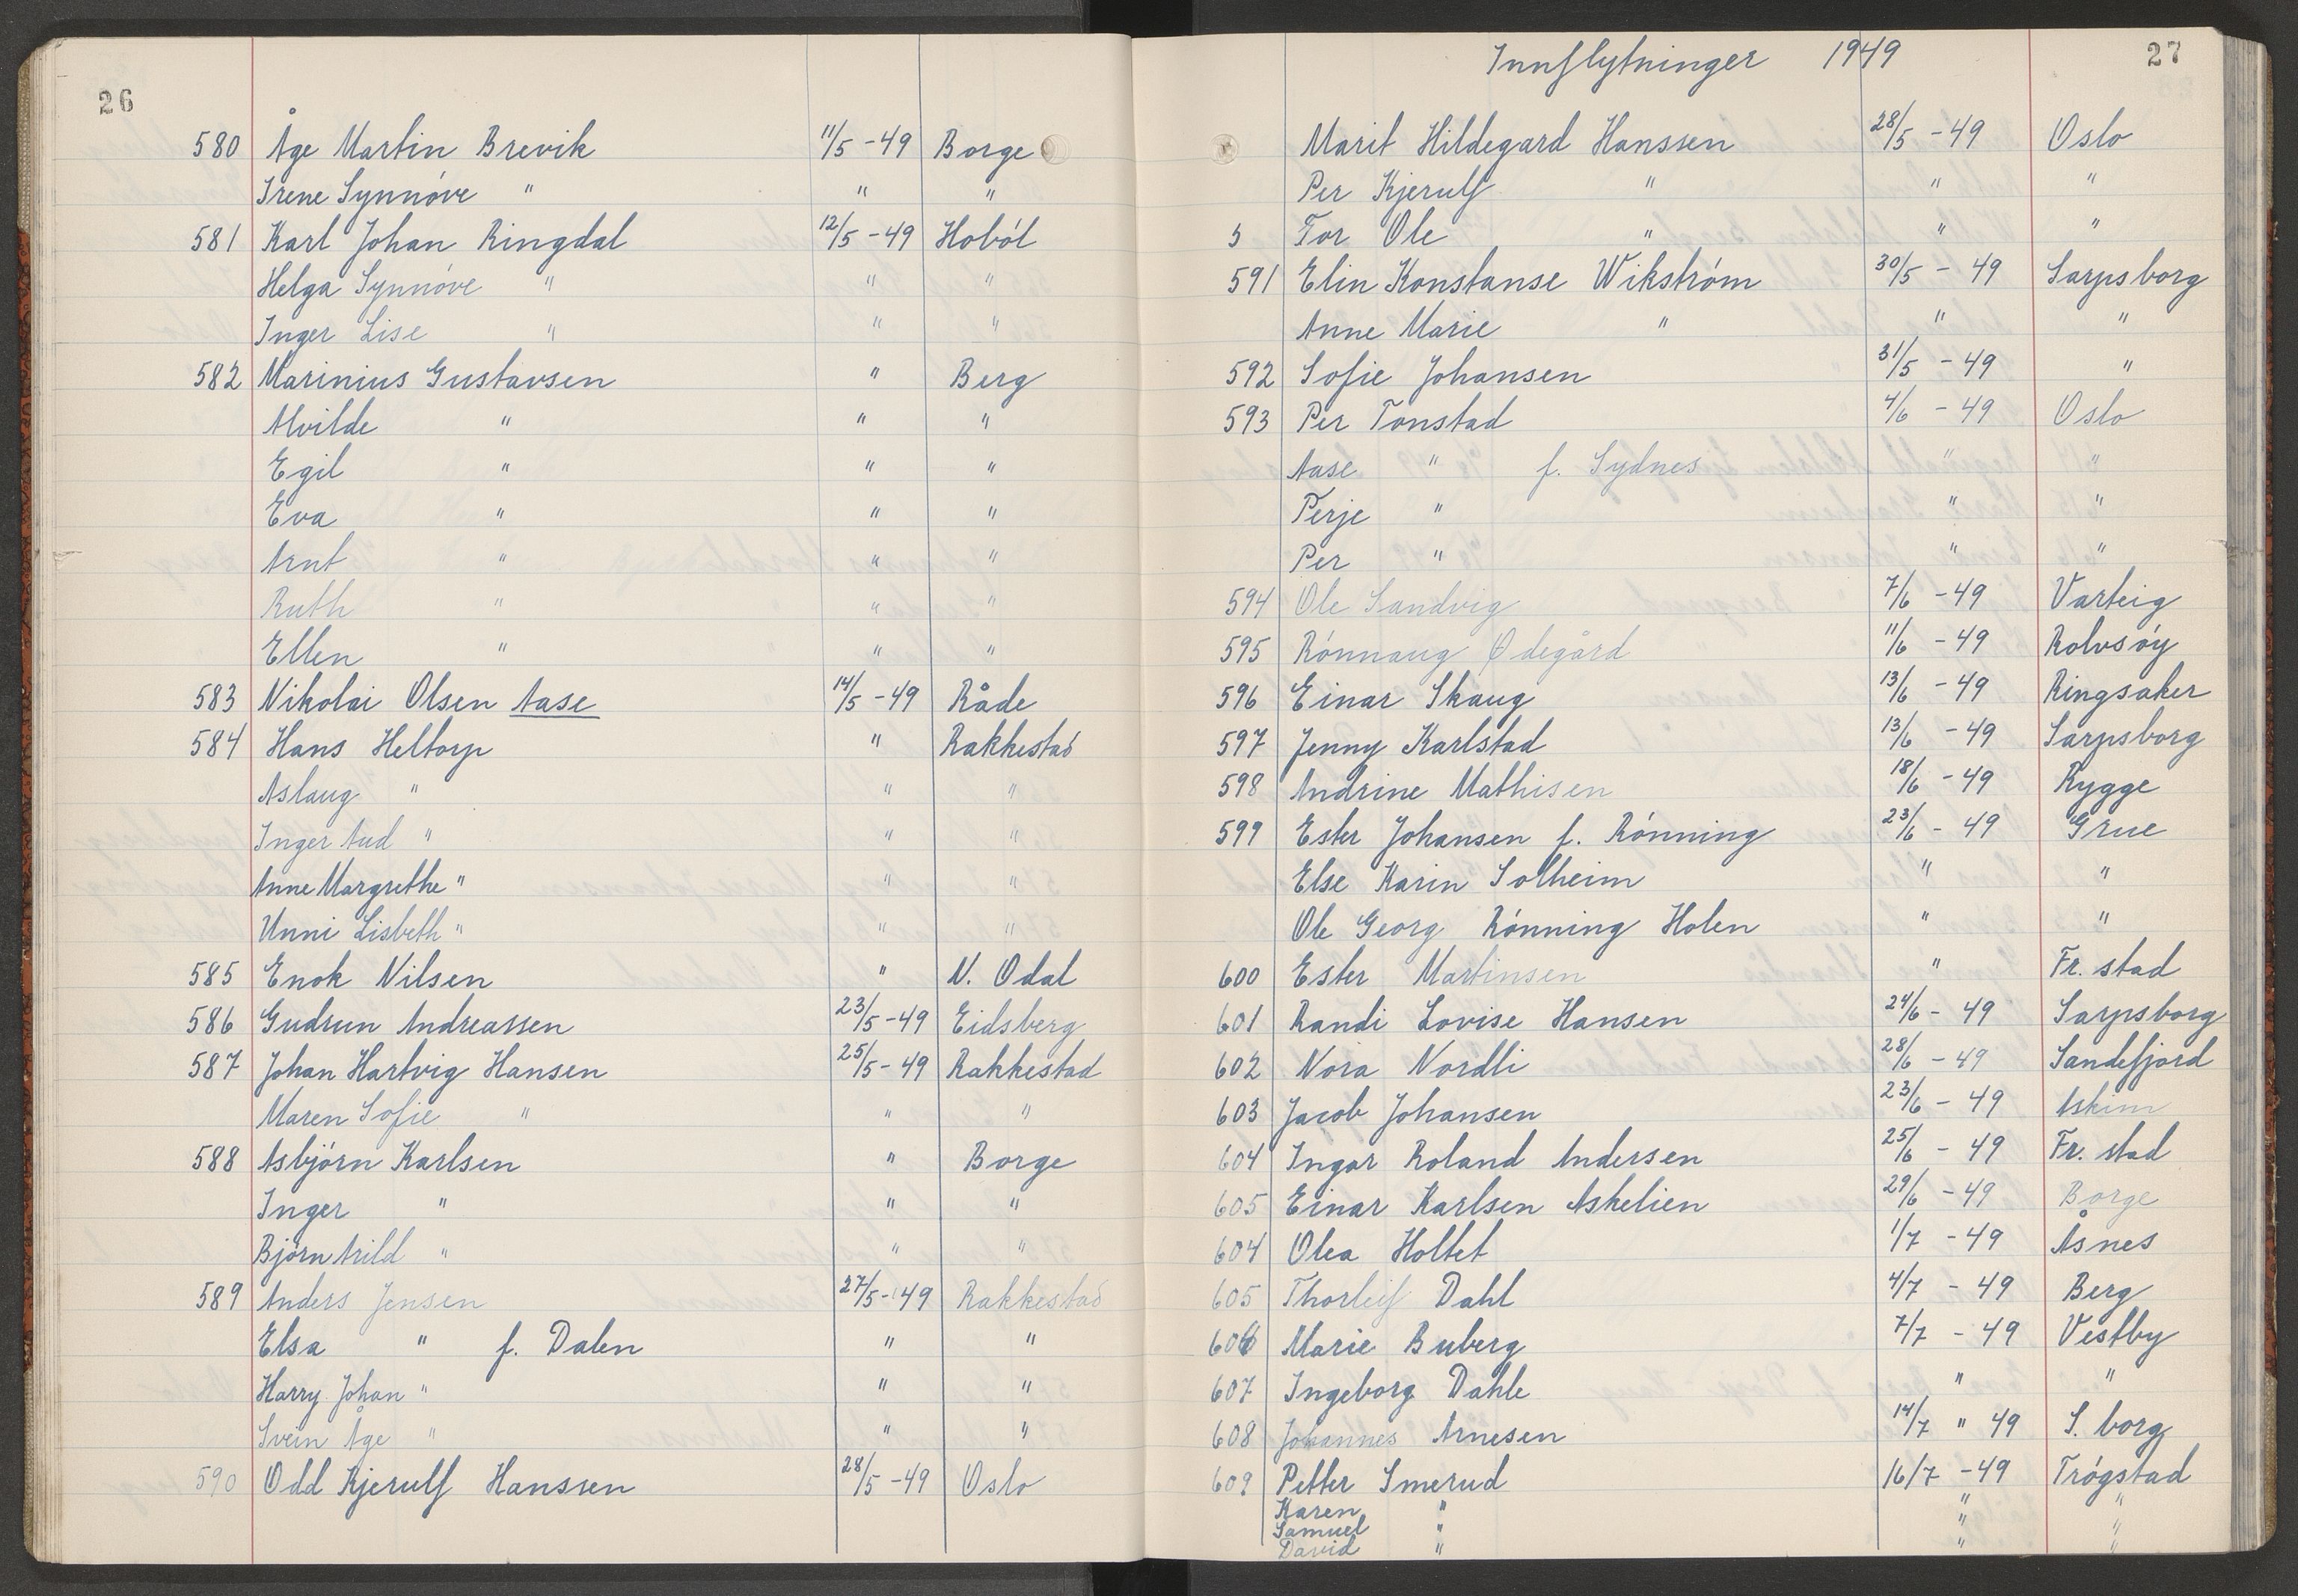 26
580 Åge Martin Brevik 11/5 -49 Borge
Irene Synnóve " " "
581 Karl Johan Ringdal 12/5 -49 Hoból
Helga Synnóve " " "
Inger Lise " " "
582 Marinius Gustavsen " Berg
Alvilde " " "
Egil " " "
Eva " " "
Arnt " " "
Ruth " " "
Ellen " " "
583 Nikolai Olsen Aase 14/5 -49 Råde
584 Hans Heltorp " Rakkestad
Aslaug " " "
Inger Aud " " "
Anne Margrethe " " "
Unni Lisbeth " " "
585 Enok Nilsen " N. Odal
586 Gudrun Andreassen 23/5 -49 Eidsberg
587 Johan Hartvig Hansen 25/5 -49 Rakkestad
Maren Sofie " " "
588 Asbjörn Karlsen " Borge
Inger " " "
Bjórn Arild " " "
589 Anders Jensen 27/5 -49 Rakkestad
Elsa " f. Dalen " "
Harry Johan " " "
Svein Åge " " "
590 Odd Kjerulf Hanssen 28/5 -49 Oslo
Innflytninger 1949 27
Marit Hildegard Hanssen 28/5 -49 Oslo
Per Kjerulf " " "
5 Tor Ole " " "
591 Elin Konstanse Wikstróm 30/5 - 49 Sarpsborg
Anne Marie " " "
592 Sofie Johansen 31/5 -49 "
593 Per Tonstad 4/6 -49 Oslo
Aase " f. Sydnes " "
Terje " " "
Per " " "
594 Ole Sandvig 7/6 -49 Varteig
595 Rónnaug Ødegård 11/6 -49 Rolvsóy
596 Einar Skaug 13/6 -49 Ringsaker
597 Jenny Karlstad 13/6 -49 Sarpsborg
598 Andrine Mathisen 18/6 -49 Rygge
599 Ester Johansen f. Rónning 23/6 - 49 Grue
Else Karin Solheim " "
Ole Georg Rónning Holen " "
600 Ester Martinsen " Fr. stad
601 Randi Lovise Hansen 24/6 - 49 Sarpsborg
602 Nora Nordli 28/6 -49 Sandefjord
603 Jacob Johansen 23/6 - 49 Askim
604 Ingar Roland Andersen 25/6 - 49 Fr. stad
605 Einar Karlsen Askelien 29/6 -49 Borge
604 Olea Holtet 1/7 -49 Åsnes
605 Thorleif Dahl 4/7 - 49 Berg
606 Marie Buberg 7/7 - 49 Vestby
607 Ingeborg Dahle " "
608 Johannes Arnesen 14/7 " 49 S. borg
609 Petter Smerud 16/7 -49 Trógstad
Karen " " "
Samuel " " "
David " " "